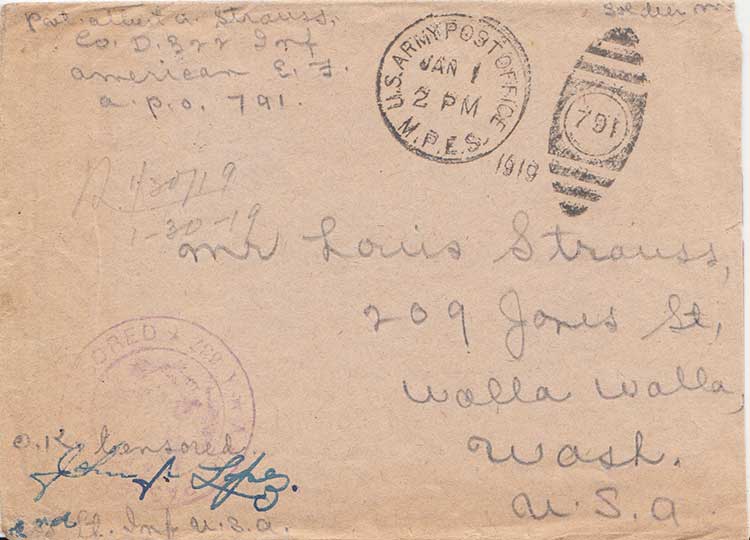 Pvt. Albert A. Strauss,
Co. D. 322 Inf
American E. F.
a. p. o. 791.
Soldier
U.S. ARMY POST OFFICE
JAN 1
2 PM
M.P.E.S.
1919
791
1/30/19
1-30-19
Mr Louis Strauss,
209 Jones St,
Walla Walla,
Wash.
U.S.A
O.K. Censored
Lopez.
2nd Lt. Inf U.S.A.